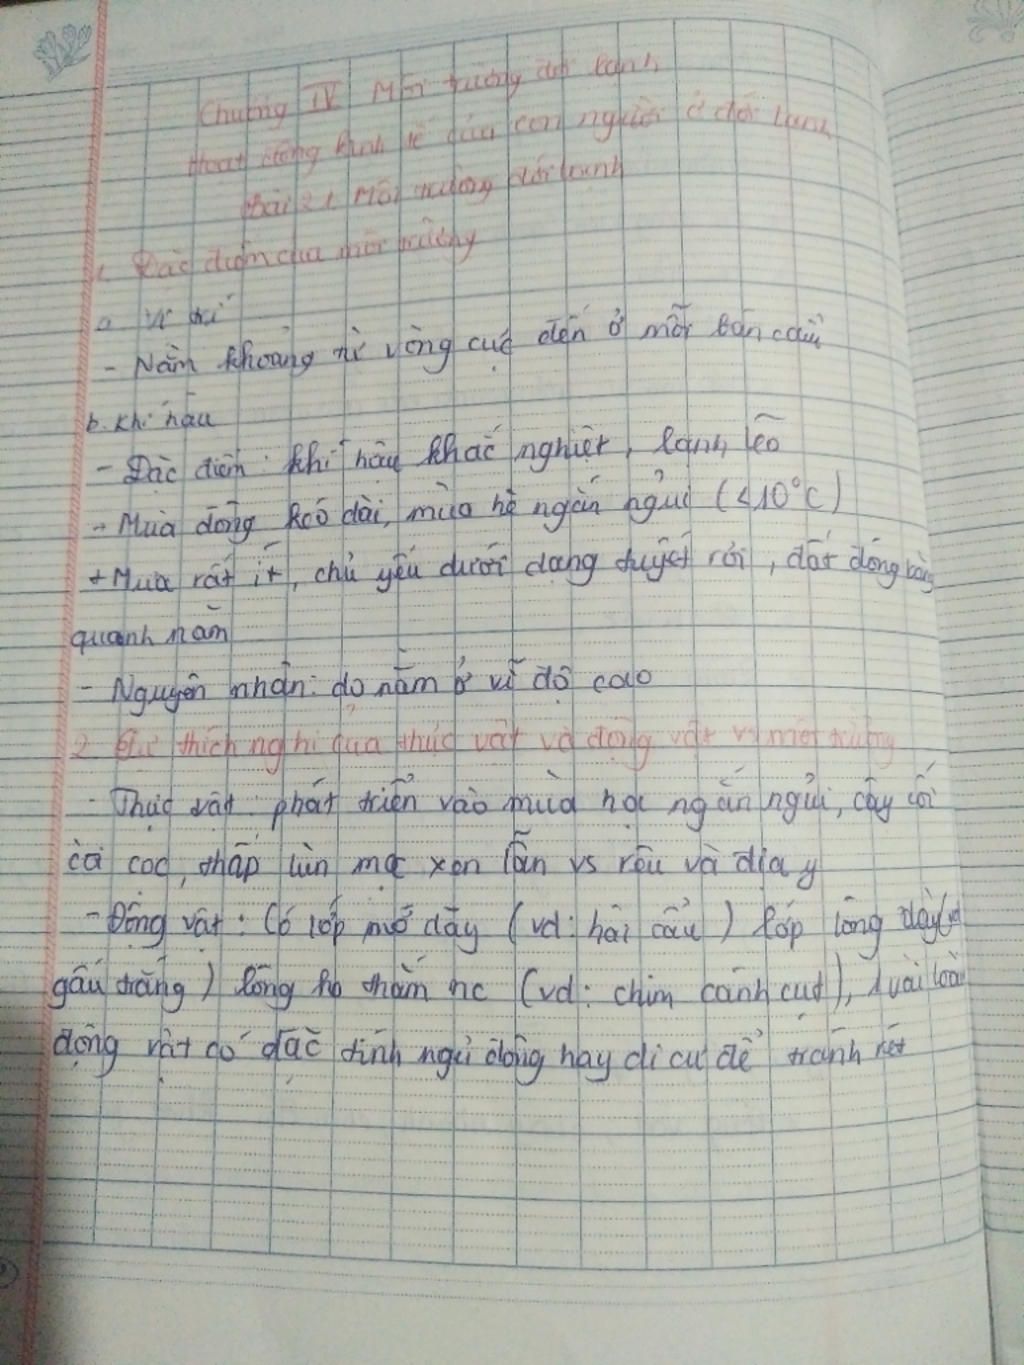 Chương IV Môi trường đới lạnh
Hoạt động kinh tế của con người ở đới lạnh
Bài 21 Môi trường đới lạnh
1. Đặc điểm của môi trường
a. Vị trí
- Nằm khoảng từ vòng cực đến ở mỗi bán cầu
b. Khí hậu
- Đặc điểm: khí hậu khắc nghiệt, lạnh lẽo
+ Mùa đông kéo dài, mùa hè ngắn ngủi (<10°C)
+ Mưa rất ít, chủ yếu dưới dạng tuyết rơi, đất đóng băng
quanh năm
- Nguyên nhân: do nằm ở vĩ độ cao
2 Sự thích nghi của thực vật và động vật vs môi trường
- Thực vật: phát triển vào mùa hạ ngắn ngủi, cây cối
còi cọc, thấp lùn mọc xen lẫn vs rêu và địa y
- Động vật: Có lớp mỡ dày (vd: hải cẩu) lớp lông dày (vd
gấu trắng) lông ko thấm nc (vd: chim cánh cụt), 1 vài loài
động vật có đặc tính ngủ đông hay di cư để tránh rét